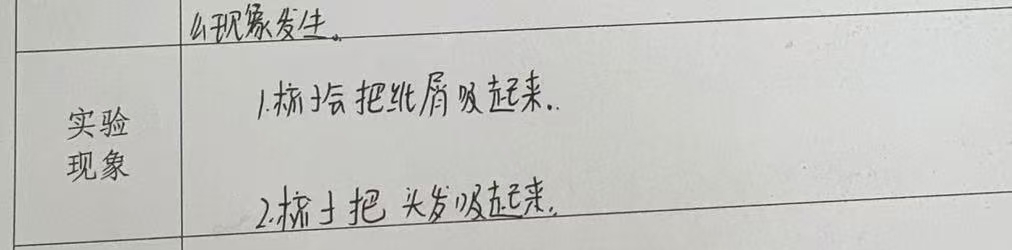 么现象发生。
实验
现象
1.梳子会把纸屑吸起来.
2.梳子把头发吸起来.